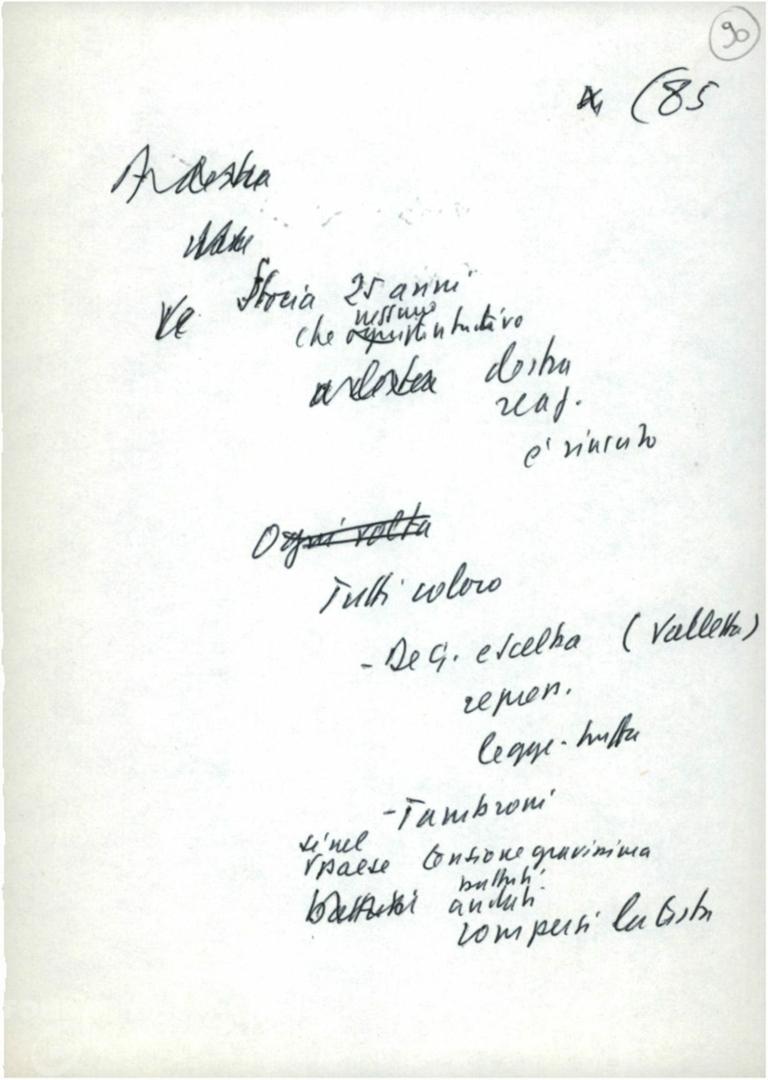 90
(85
A destra
Storia 25 anni
Ve
nessuno
che tentativo
destra
reaz.
è riuscito
Ogni volta
Tutti coloro
- De G. e Scelba (Valletta)
repres.
legge-truffa
- Tambroni
si nel
paese tensione gravissima
battuti
andati
rompersi la testa